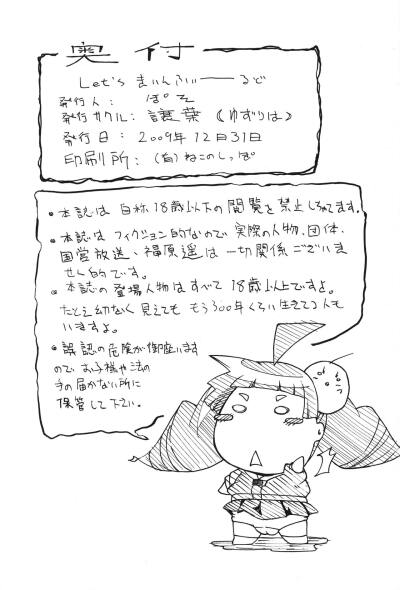 奥付
Let's まいんふぃーーるど
発行人： ぽそ
発行サークル： 譲葉（ゆずりは）
発行日： 2009年12月31日
印刷所： （有）ねこのしっぽ
・本誌は 自称18歳以下の閲覧を禁止しちゃてます。
・本誌はフィクション的なので実際の人物、団体、
国営放送、福原遥は一切関係ございま
せん的です。
・本誌の登場人物はすべて18歳以上ですよ。
たとえ幼なく見えても もう300年くらい生きてる人も
いますよ。
・誤認の危険が御座います
ので お子様や法の
手の届かない所に
保管して下さい。